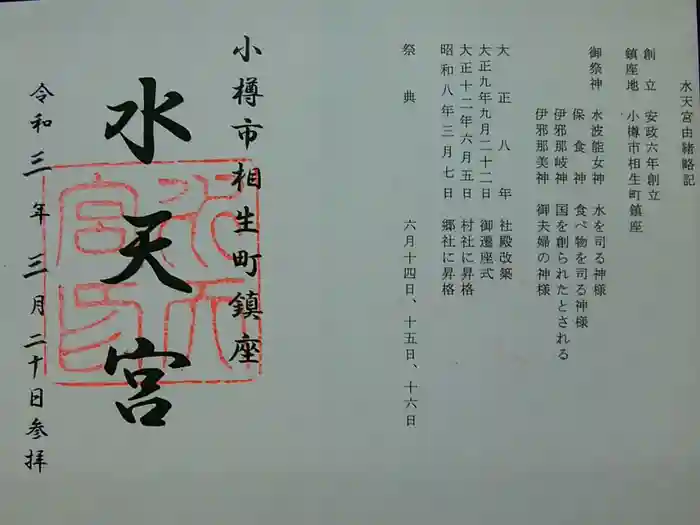 水天宮由緒略記
創立 安政六年創立
鎮座地 小樽市相生町鎮座
御祭神 水波能女神 水を司る神様
保食神 食べ物を司る神様
伊邪那岐神 国を創られたとされる
伊邪那美神 御夫婦の神様
大正八年 社殿改築
大正九年九月二十二日 御遷座式
大正十二年六月五日 村社に昇格
昭和八年三月七日 郷社に昇格
祭典 六月十四日、十五日、十六日
小樽市相生町鎮座
水天宮
水天宮印
令和三年三月二十日参拝